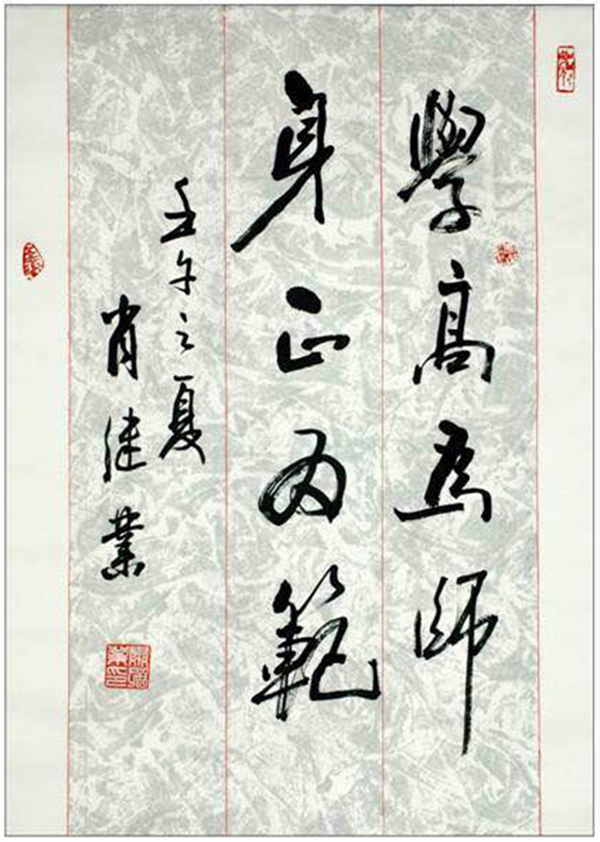 學高為師
身正为範
壬午之夏
肖建業